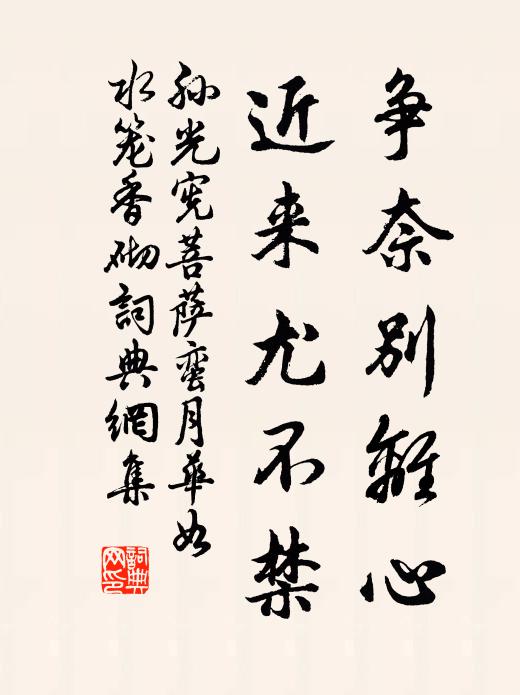 争奈別離心
近来尤不禁
孙光宪菩萨蛮月华如
水笼香砌詞典網集
詞典
网印